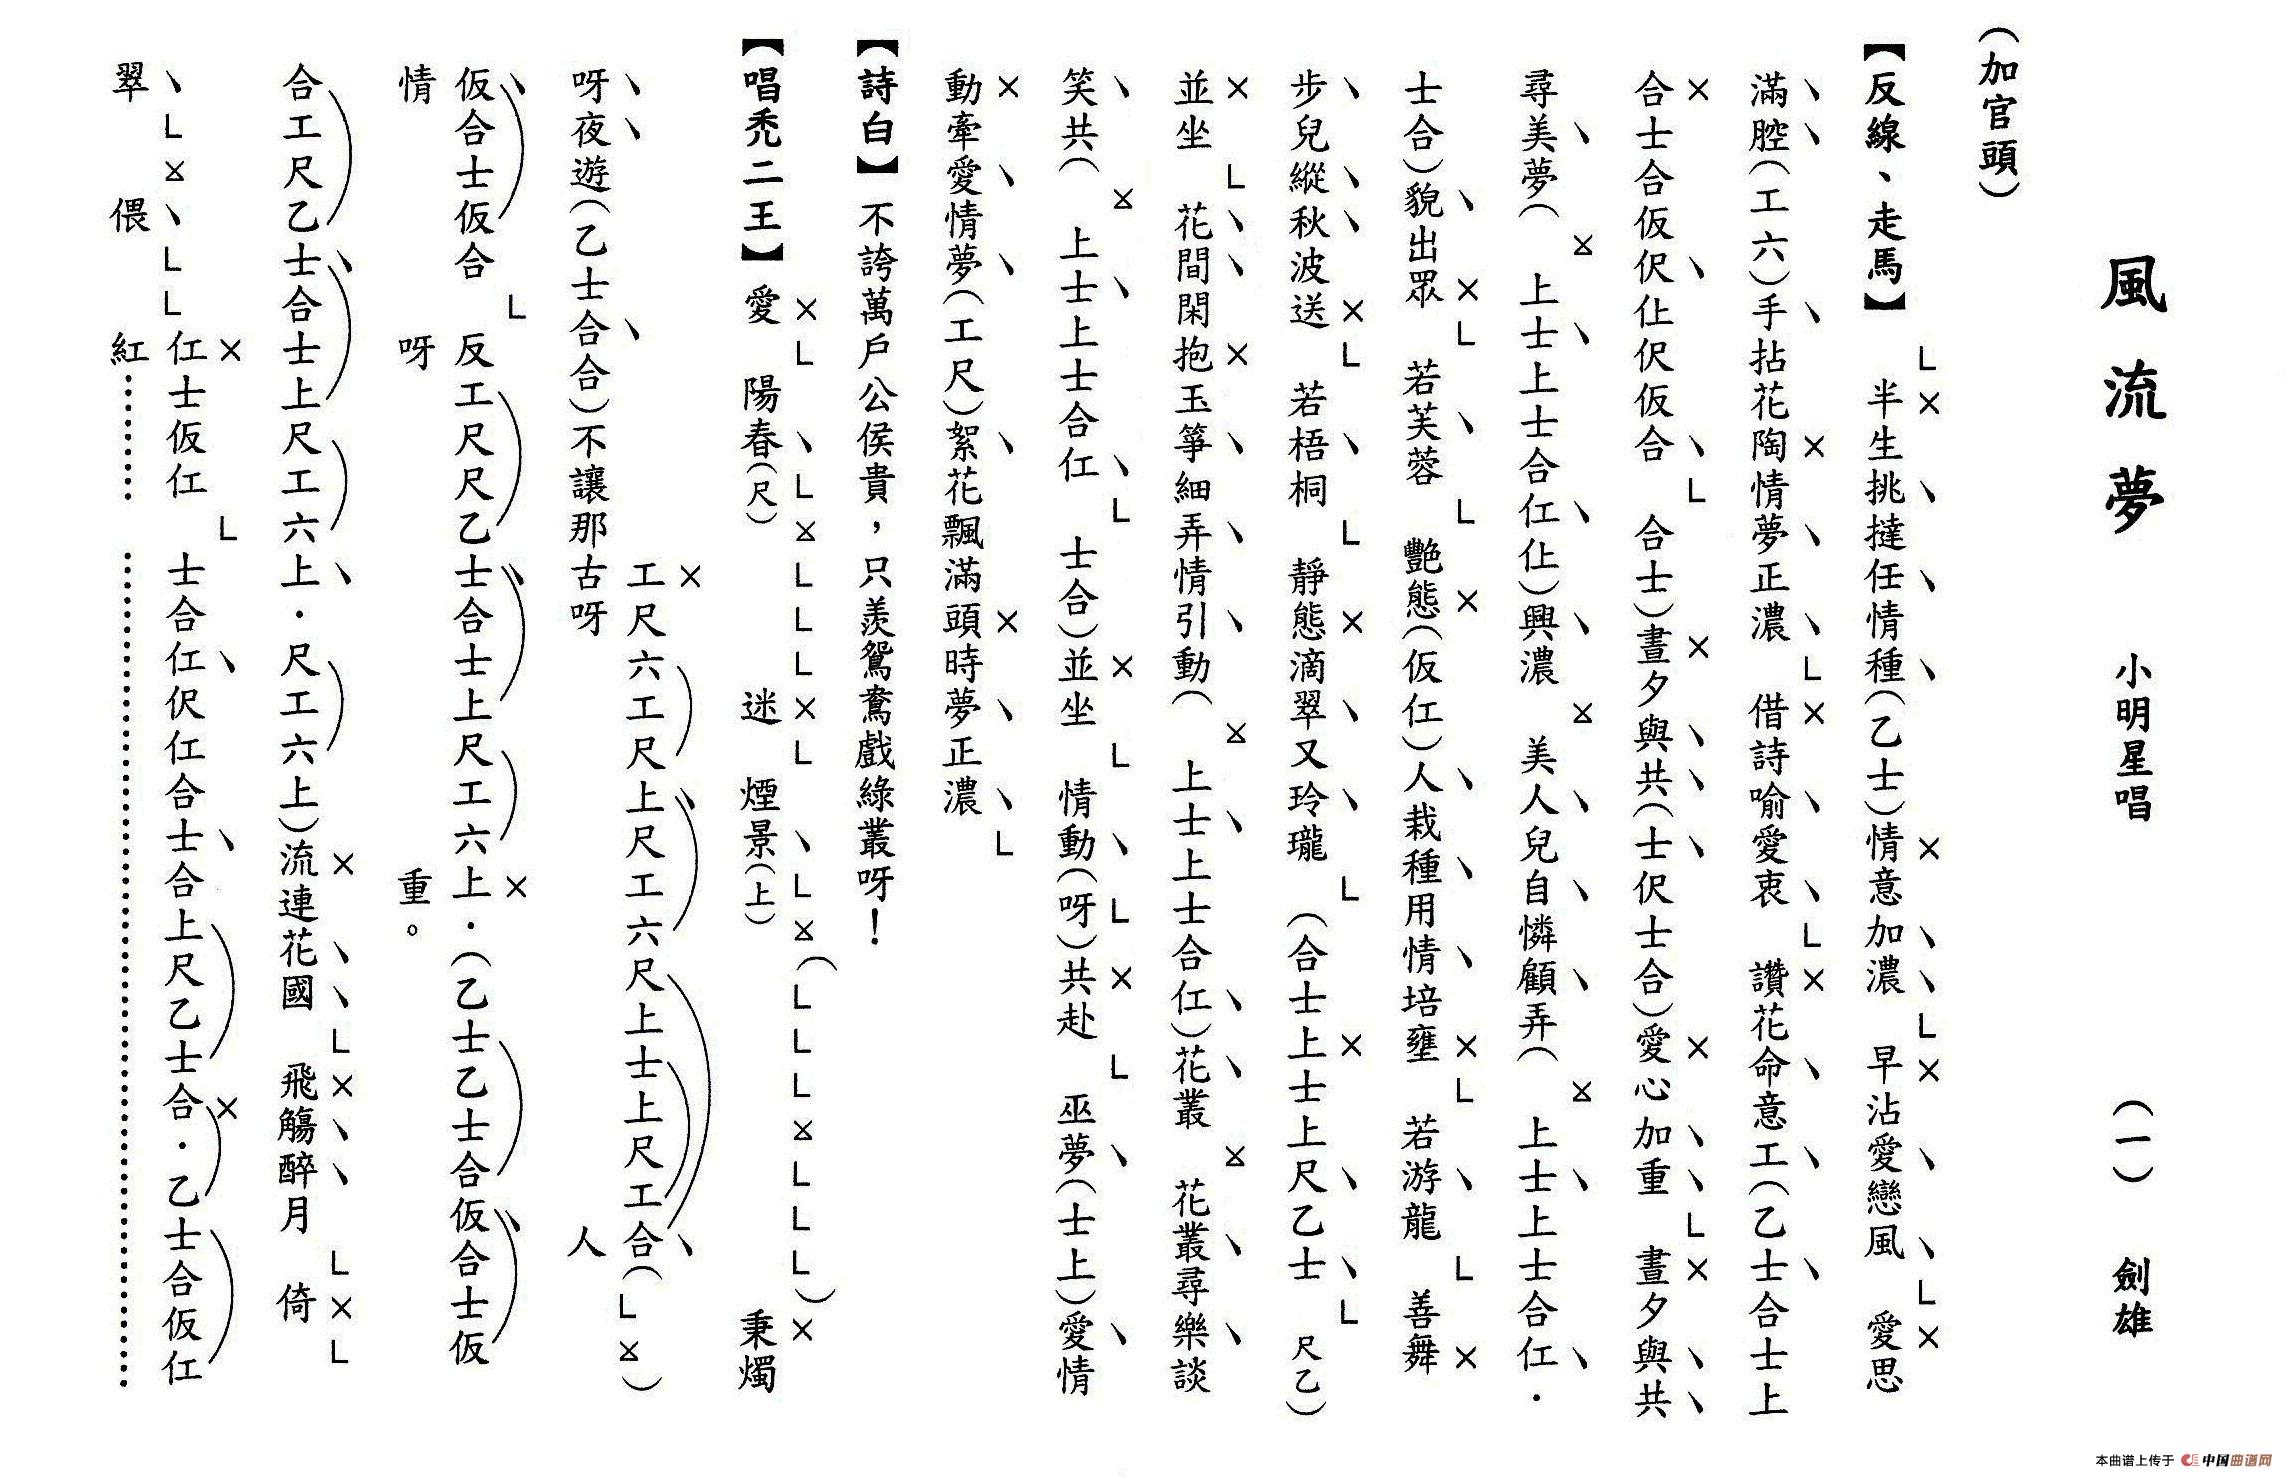 風流夢 小明星唱 (一) 劍雄
(加官頭)
【反線、走馬】 半生挑撻任情種(乙士)情意加濃 早沾愛戀風 愛思
滿腔(工六)手拈花陶情夢正濃 借詩喻愛衷 讚花命意工(乙士合士上
合士合仮伬仩伬仮合 合士)晝夕與共(士伬士合)愛心加重 晝夕與共
尋美夢( 上士上士合仜仩)興濃 美人兒自憐顧弄( 上士上士合仜·
士合)貌出眾 若芙蓉 艷態(仮仜)人栽種用情培壅 若游龍 善舞
步兒縱秋波送 若梧桐 靜態滴翠又玲瓏 (合士上士上尺乙士 尺乙)
並坐 花間閑抱玉箏細弄情引動( 上士上士合仜)花叢 花叢尋樂談
笑共( 上士上士合仜 士合)並坐 情動(呀)共赴 巫夢(士上)愛情
動牽愛情夢(工尺)絮花飄滿頭時夢正濃
【詩白】不誇萬戶公侯貴，只羨鴛鴦戲綠叢呀！
【唱禿二王】愛 陽春(尺) 迷 煙景(上) 秉燭
工尺六工尺上尺工六尺上士上尺工合(
呀夜遊(乙士合合)不讓那古呀 人
仮合士仮合 反工尺尺乙士合士上尺工六上·(乙士乙士合仮合士仮
情 呀 重。
合工尺乙士合士上尺工六上·尺工六上)流連花國 飛觴醉月 倚
仜士仮仜 士合仜伬仜合士合上尺乙士合·乙士合仮仜
翠 偎 紅……
本曲谱上传于 中国曲谱网